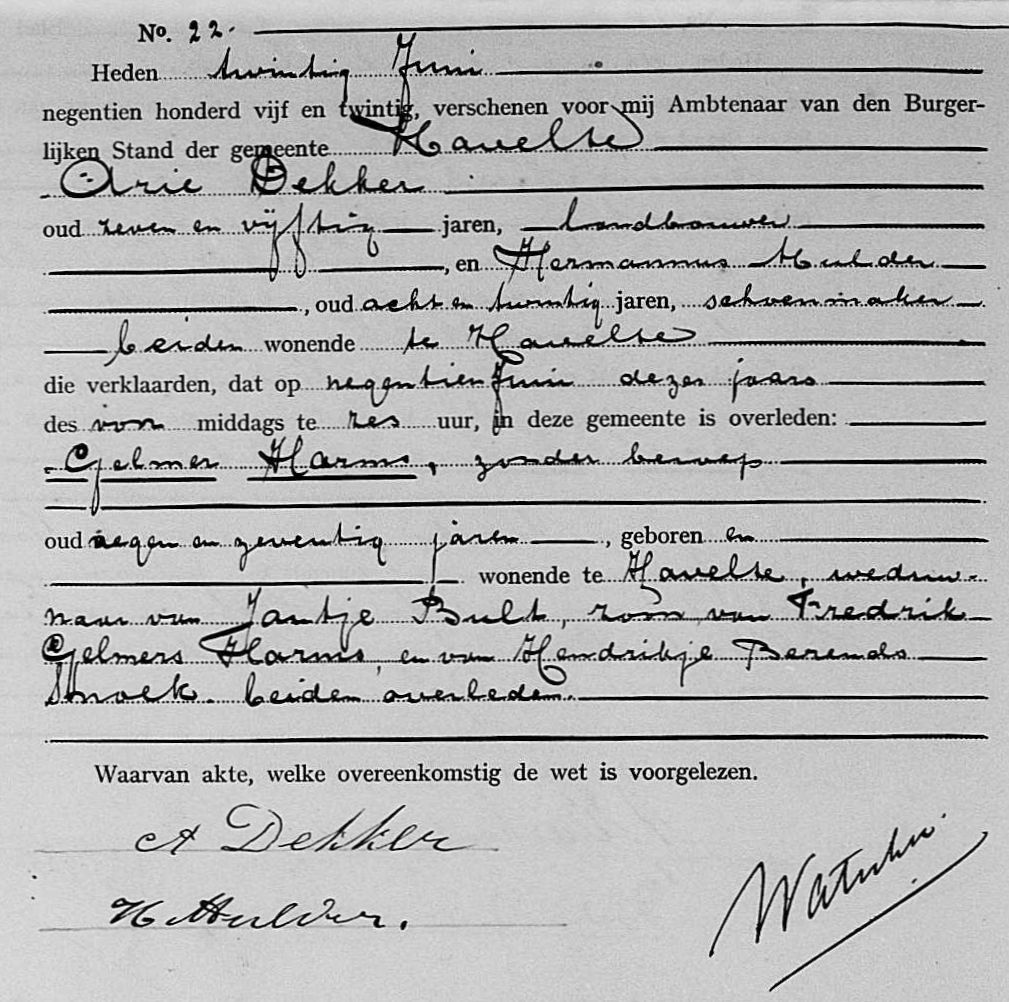 No. 22.
Heden twintig Juni
negentien honderd vijf en twintig, verschenen voor mij Ambtenaar van den Burger-
lijken Stand der gemeente Havelte
Arie Dekker
oud zeven en vijftig jaren, landbouwer
, en Hermannus Mulder
, oud acht en twintig jaren, schoenmaker
beiden wonende te Havelte
die verklaarden, dat op negentien Juni dezes jaars
des voor middags te zes uur, in deze gemeente is overleden:
Gelmer Harms, zonder beroep
oud negen en zeventig jaren, geboren en
wonende te Havelte, weduw-
naar van Jantje Bult, zoon van Fredrik
Gelmers Harms, en van Hendrikje Berends
Snoek. beiden overleden.
Waarvan akte, welke overeenkomstig de wet is voorgelezen.
A Dekker
H Mulder.